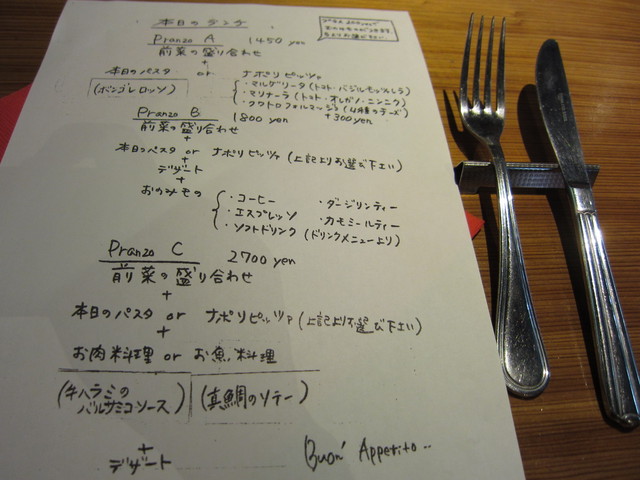 本日のランチ
Pranzo A 1450 yen
前菜の盛り合わせ
+
本日のパスタ or ナポリピッツァ
(ボンゴレロッソ)
・マルゲリータ(トマト・バジル・モッツァレラ)
・マリナーラ(トマト・オレガノ・ニンニク)
・クワトロフォルマッジ(4種のチーズ)
+300yen
Pranzo B 1800 yen
前菜の盛り合わせ
+
本日のパスタ or ナポリピッツァ(上記よりお選び下さい)
+
デザート
+
おのみもの
・コーヒー ・ダージリンティー
・エスプレッソ ・カモミールティー
・ソフトドリンク(ドリンクメニューより)
Pranzo C 2700 yen
前菜の盛り合わせ
+
本日のパスタ or ナポリピッツァ(上記よりお選び下さい)
+
お肉料理 or お魚料理
(牛ハラミのバルサミコソース) (真鯛のソテー)
+
デザート
Buon Appetito…